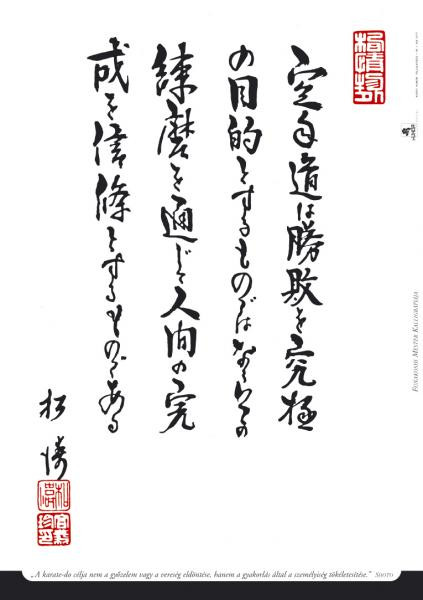 空手道は勝敗を究極
の目的とするものでは
練磨を通じて人間の完
成を信條とするものである
松濤
Funakoshi Mester Kalligráfiája
„A karate-do célja nem a győzelem vagy a vereség eldöntése, hanem a gyakorlás által a személyiség tökéletesítése.” Shoto